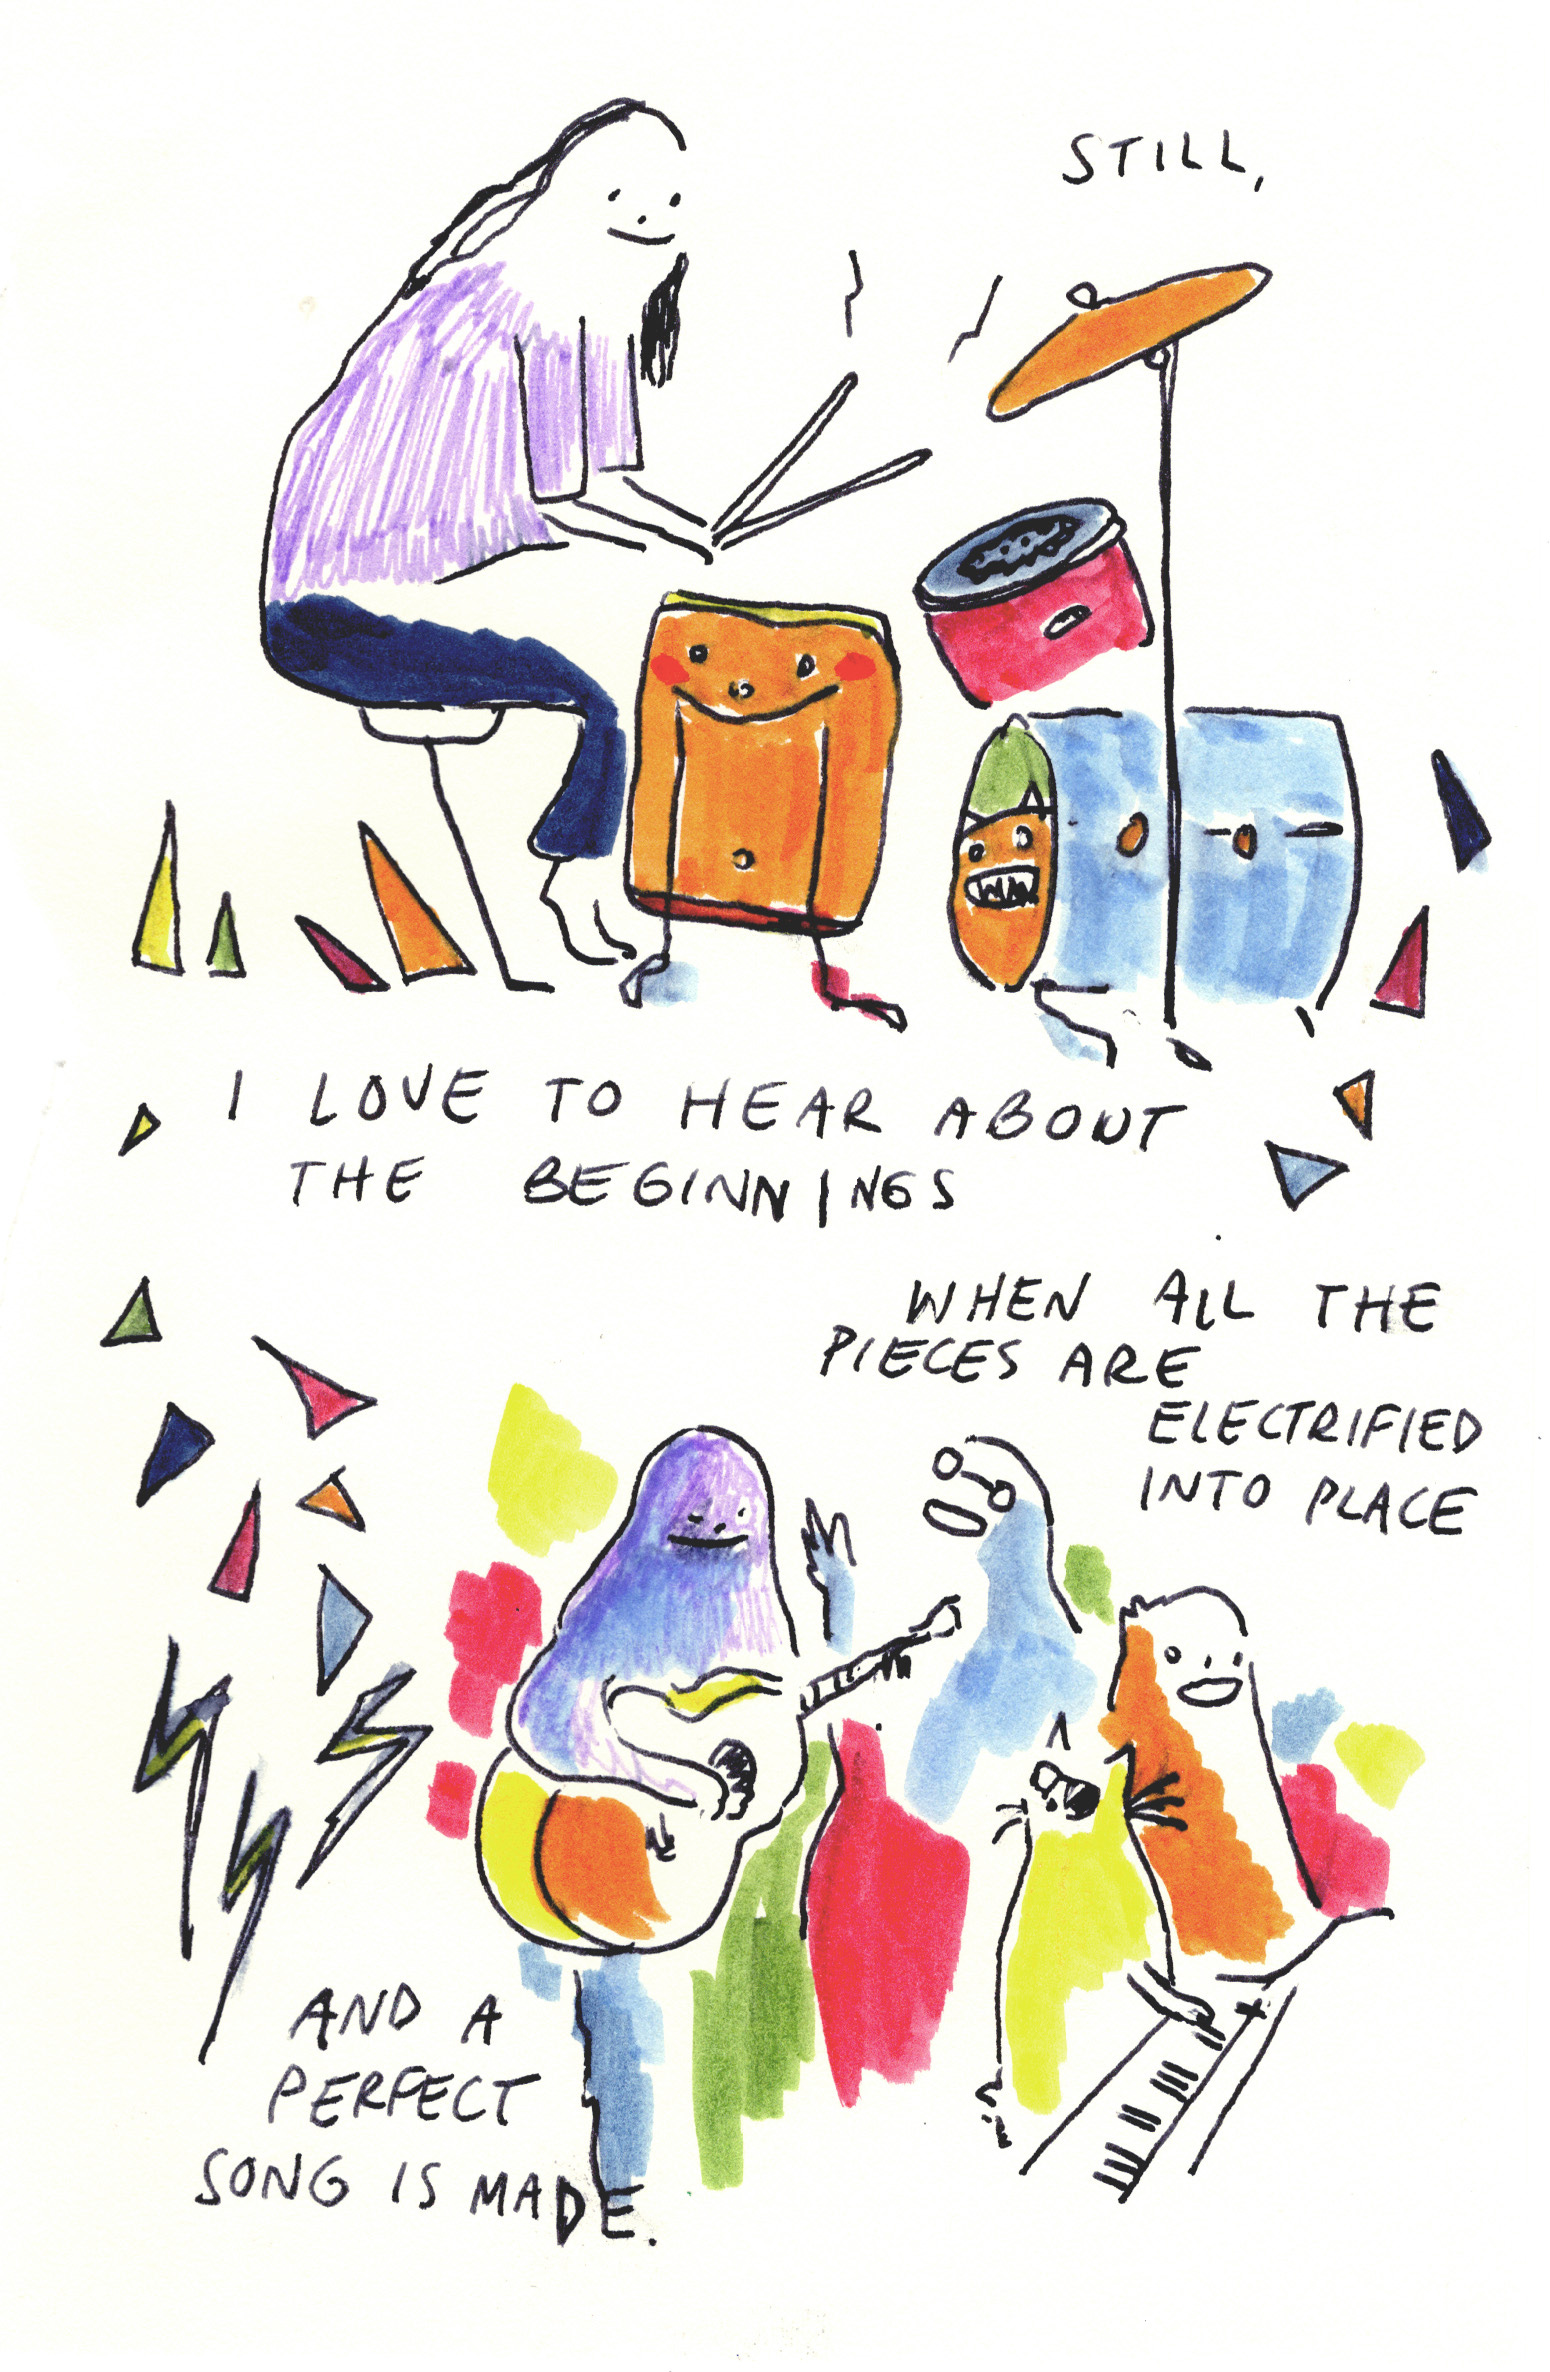 STILL,
I LOVE TO HEAR ABOUT
THE BEGINNINGS
WHEN ALL THE
PIECES ARE
ELECTRIFIED
INTO PLACE
AND A
PERFECT
SONG IS MADE.